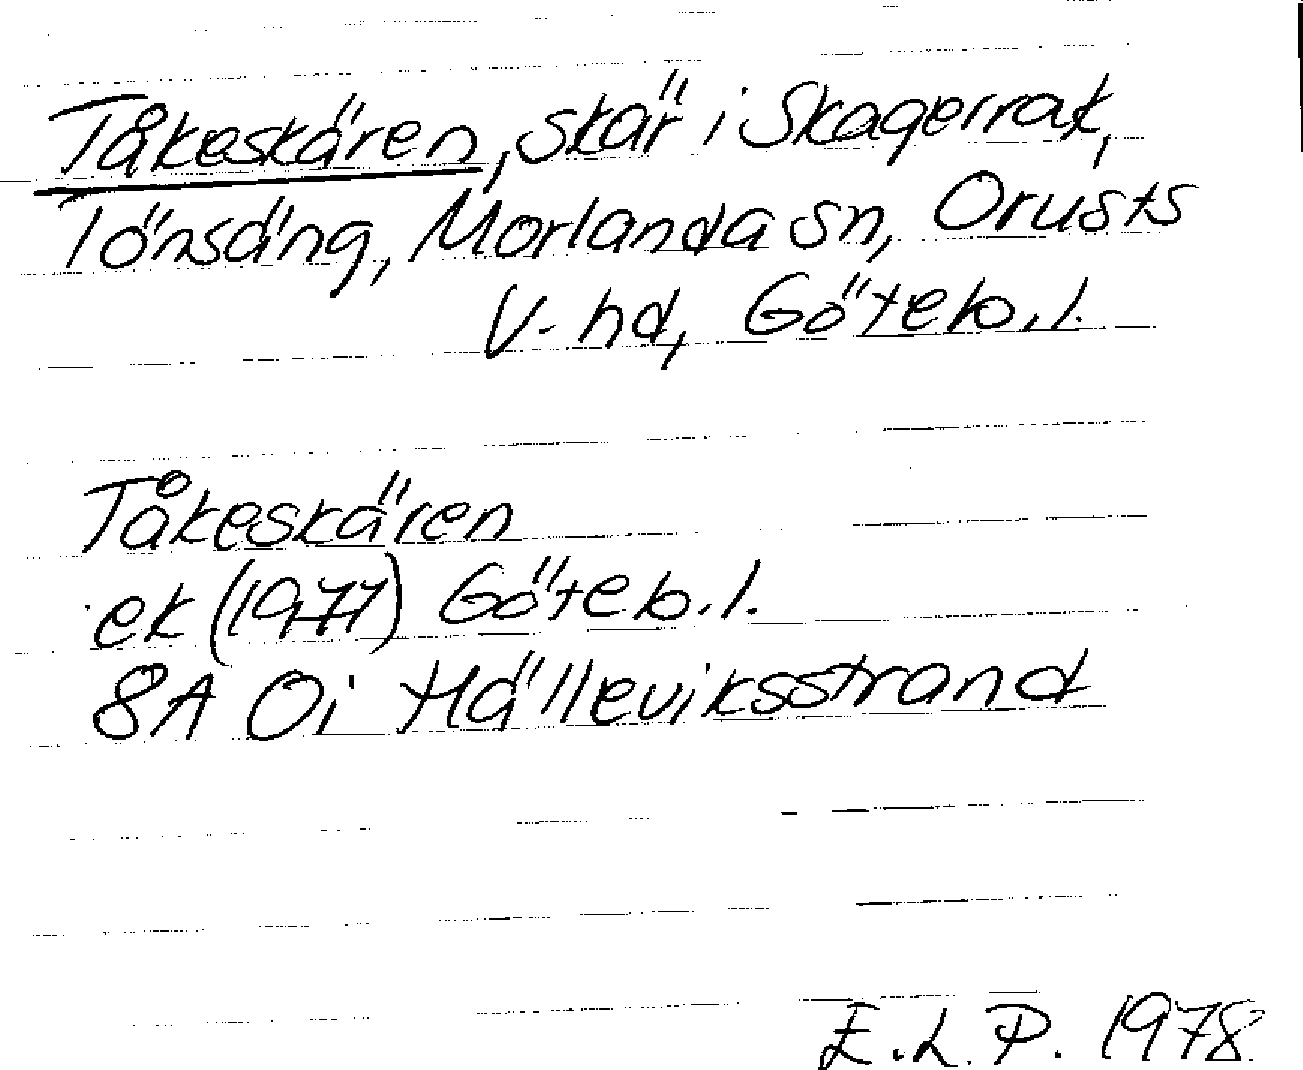 Tåkeskären, skär i Skagerrak,
Tönsäng, Morlanda sn, Orusts
V. hd, Göteb. l.
Tåkeskären
ek (1977) Göteb. l.
8A 0i Hälleviksstrand
E.L.P. 1978